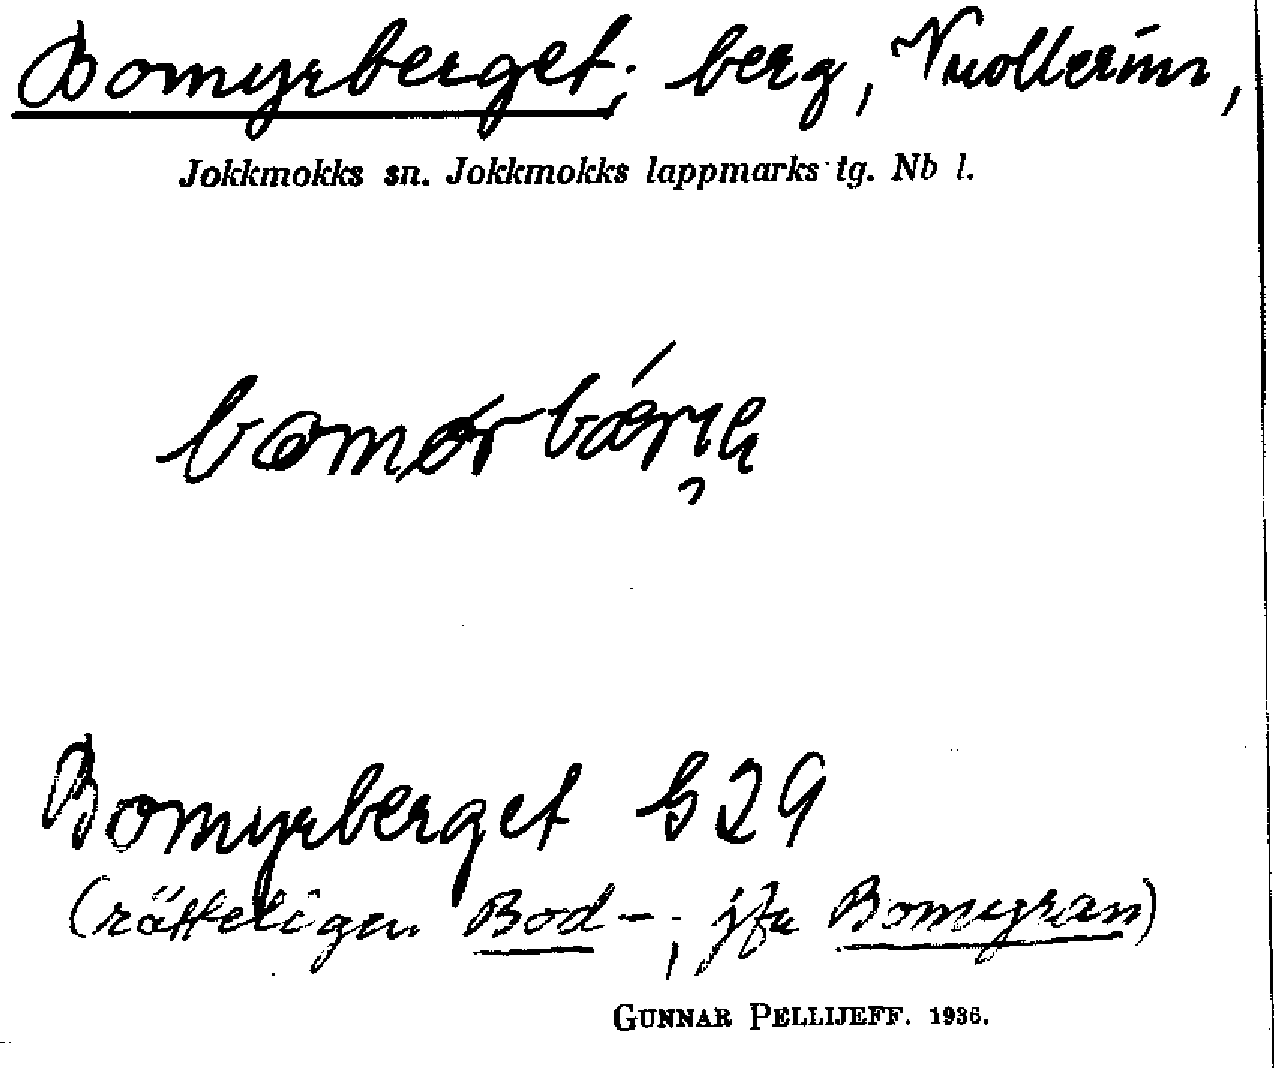 Bomyrberget; berg, Vuollerim,
Jokkmokks sn. Jokkmokks lappmarks tg. Nb l.
Bomyrberget G29
(rätteligen Bod-; jfr Bomyran)
GUNNAR PELLIJEFF. 1936.